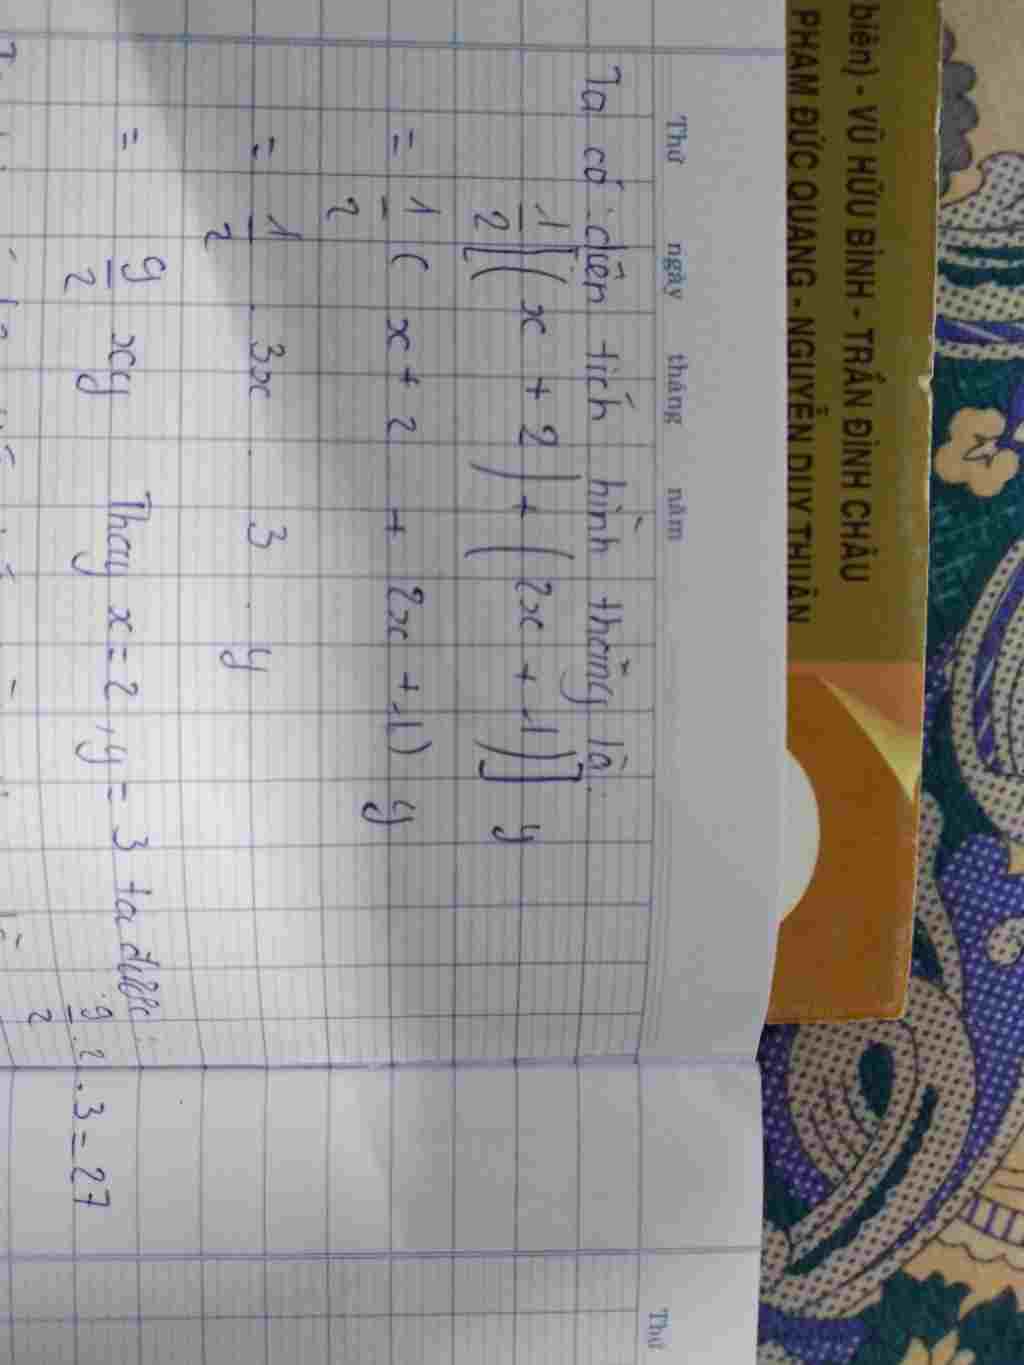 biên) - VŨ HỮU BÌNH - TRẦN ĐÌNH CHÂU
PHẠM ĐỨC QUANG - NGUYỄN DUY THUẬN
Thứ ngày tháng năm
Thứ
Ta có : diện tích hình thang là :
1/2 [(x + 2) + (2x + 1)] y
= 1/2 (x + 2 + 2x + 1) y
= 1/2 . 3x . 3 . y
= 9/2 xy Thay x = 2, y = 3 ta được :
9/2 . 2 . 3 = 27